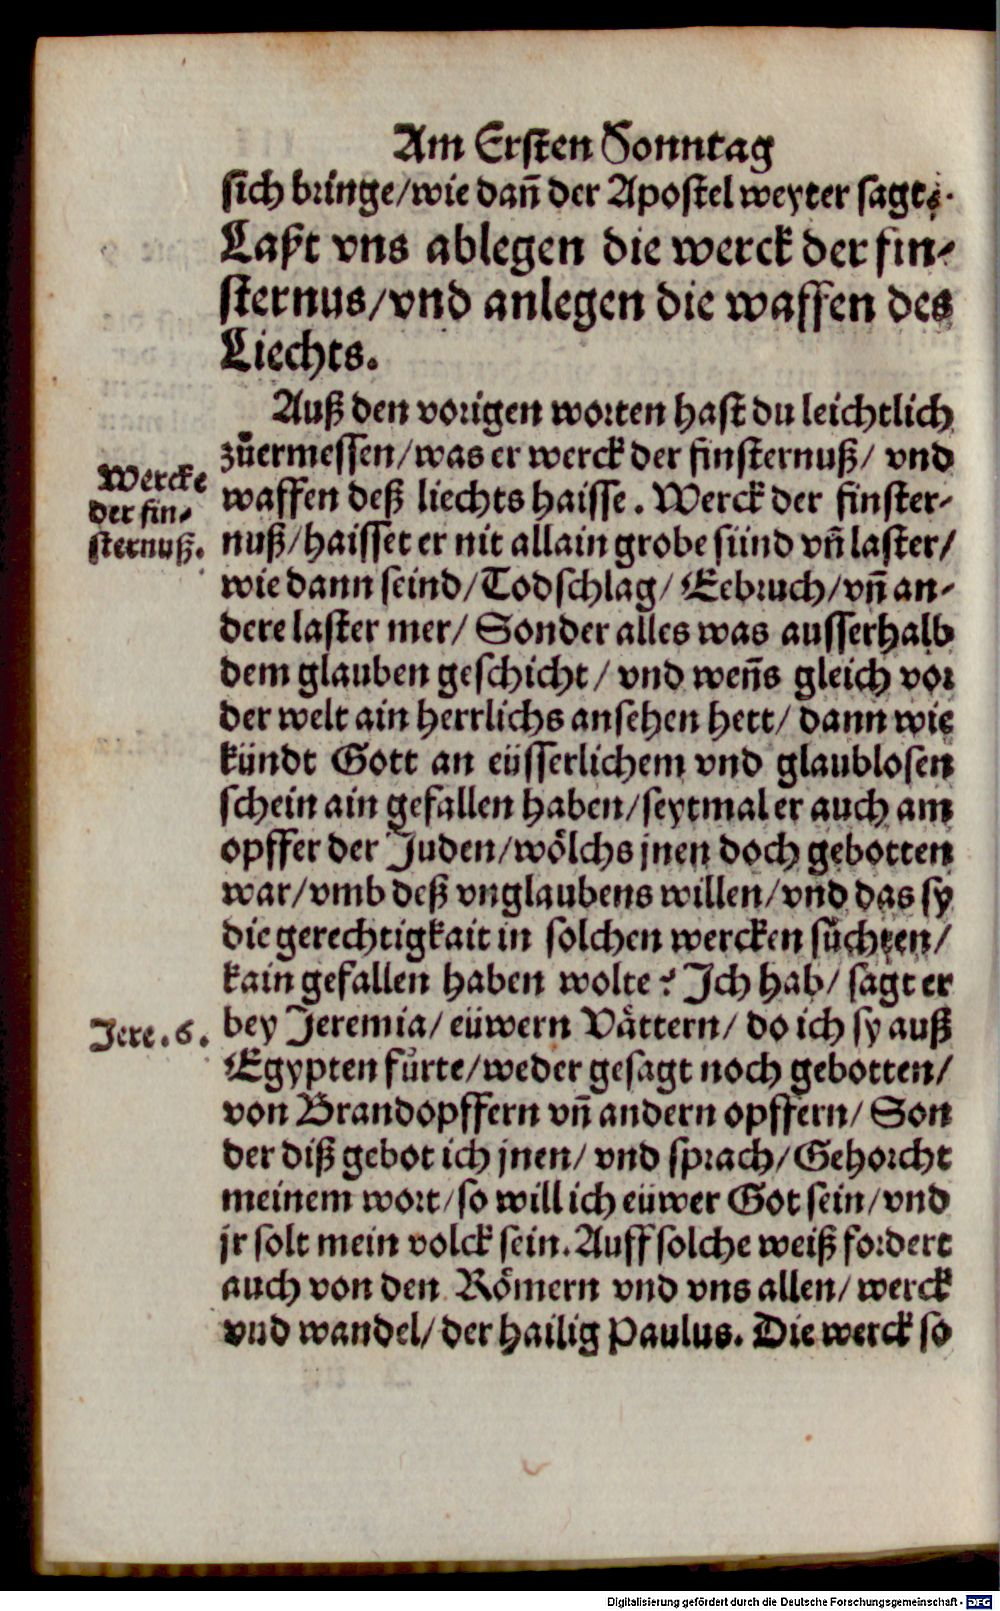 Am Ersten Sonntag
sich bringe/wie dañ der Apostel weyter sagt:
Laßt vns ablegen die werck der fin-
sternus/vnd anlegen die waffen des
Liechts.
Auß den vorigen worten hast du leichtlich
zůermessen/was er werck der finsternuß/ vnd
Wercke
der fin-
sternuß.
waffen deß liechts haisse. Werck der finster-
nuß/haisset er nit allain grobe sünd vñ laster/
wie dann seind/Todschlag/Eebruch/vñ an-
dere laster mer/ Sonder alles was ausserhalb
dem glauben geschicht/ vnd weñs gleich vor
der welt ain herrlichs ansehen hett/ dann wie
kündt Gott an eüsserlichem vnd glaublosen
schein ain gefallen haben/seytmal er auch am
opffer der Juden/wölchs jnen doch gebotten
war/vmb deß vnglaubens willen/vnd das sy
die gerechtigkait in solchen wercken sůchten/
kain gefallen haben wolte? Ich hab/ sagt er
Jere. 6.
bey Jeremia/ eüwern Vättern/ do ich sy auß
Egypten fůrte/weder gesagt noch gebotten/
von Brandopffern vñ andern opffern/ Son
der diß gebot ich jnen/ vnd sprach/Gehorcht
meinem wort/so will ich eüwer Got sein/vnd
jr solt mein volck sein. Auff solche weiß fordert
auch von den Römern vnd vns allen/ werck
vnd wandel/ der hailig Paulus. Die werck so
Digitalisierung gefördert durch die Deutsche Forschungsgemeinschaft - DFG